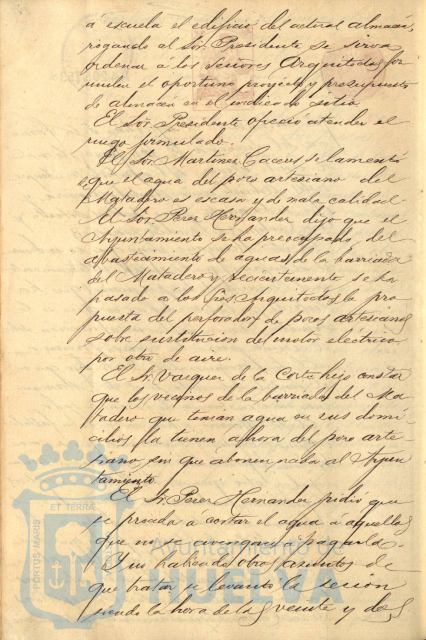 á escuela el edificio del actual almacén,
rogando al Sor. Presidente se sirva
ordenar á los Señores Arquitectos for
mulen el oportuno proyecto y presupuesto
de almacen en el indicado sitio.
El Sor. Presidente ofreció atender el
ruego formulado.
El Sor. Martinez Caceres se lamentó
que el agua del pozo artesiano del
Matadero es escasa y de mala calidad.
El Sor. Perez Hernandez dijo que el
Ayuntamiento se ha preocupado del
abastecimiento de aguas de la barriada
del Matadero y recientemente se ha
pasado a los Sres. Arquitectos la pro
puesta del perforador de pozos artesianos
sobre sustitución del motor eléctrico
por otro de aire.
El Sr. Vazquez de la Corte hizo constar
que los vecinos de la barriada del Ma
tadero que tenian agua en sus domi
cilios la tienen ahora del pozo arte
siano, sin que abonen nada al Ayun
tamiento.
El Sr. Perez Hernandez pidió que
se proceda a cortar el agua a aquellos
que no se avengan á pagarla.
Y no habiendo otros asuntos de
que tratar se levantó la sesión
siendo la hora de las veinte y dos
PORTUS MARIS
ET TERRAE
Ayuntamiento de
HUELVA